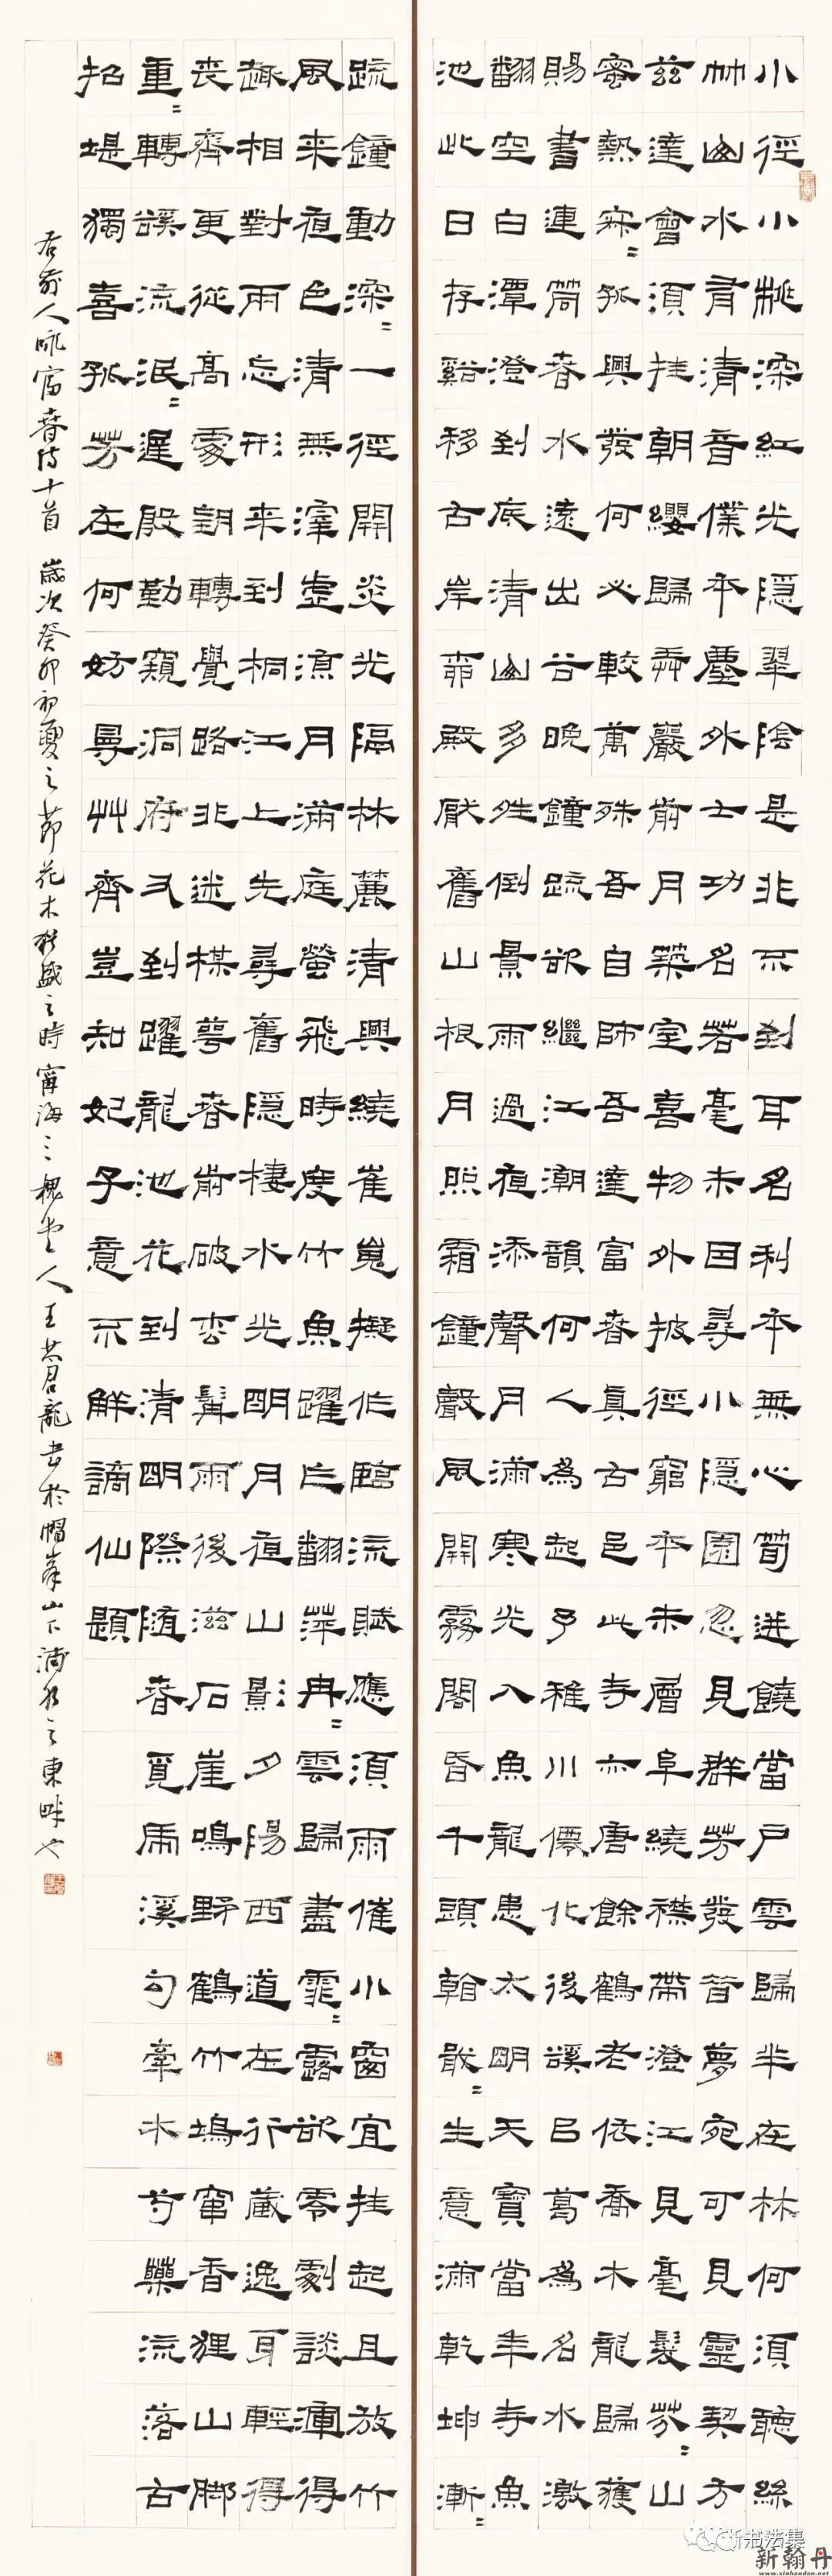 小徑小桃深紅光隱翠陰是非不到耳名利本無心筍迸饒當戶雲歸半在林何須聽絲
竹山水有清音僕本塵外士功名若毫末因尋小隱園忽見群芳發昔夢宛可見靈契方
茲達會須挂朝纓歸弄巖前月築室喜物外披徑窮本末層阜繞襟帶澄江見毫髮芬=山
蜜熱寂=孤興發何必較萬殊吾自師吾達富春真古邑此寺亦唐餘鶴老依喬木龍歸護
賜書連筒春水遠出谷晚鐘疏欲繼江潮韻何人為起予稚川僊化後溪以葛為名水激
翻空白潭澄到底清山多姓倒景雨過夜添聲月浦寒光入魚龍患太明天寶當年寺魚
池此日存谿移古岸殿厭舊山根月照霜鐘聲風開霧閣昏千頭翰散=生意滿乾坤漸=
疏鐘動深=一徑開炎光隔林麓清興繞崔嵬擬作臨流賦應須雨催小窗宜挂起且放竹
風来夜色清無滓虛涼月滿庭螢飛時度竹魚躍翻萍冉=雲歸盡霏=露欲零劇談渾得
趣相對兩忘形来到桐江上先尋舊隱棲水光明月夜山影夕陽西道在行藏逸身輕得
喪齊更從高處望轉覺路非迷楳萼春前破杏髯雨後滋石崖鳴野鶴竹塢竄香狸山脚
重=轉溪流泯=遲殷勤窺洞府又到躍龍池花到清明際随春覓虎溪句牽木芍藥流落古
招堤獨喜孤芳在何妨艸齊豈知妃子意不解謫仙題
右前人咏富春詩十首 歲次癸卯初夏之節花木盛之時寧海三槐堂人王君龍書於帽峯山下浦水之東畔也
新书法集
新翰丹
www.xinhandan.net